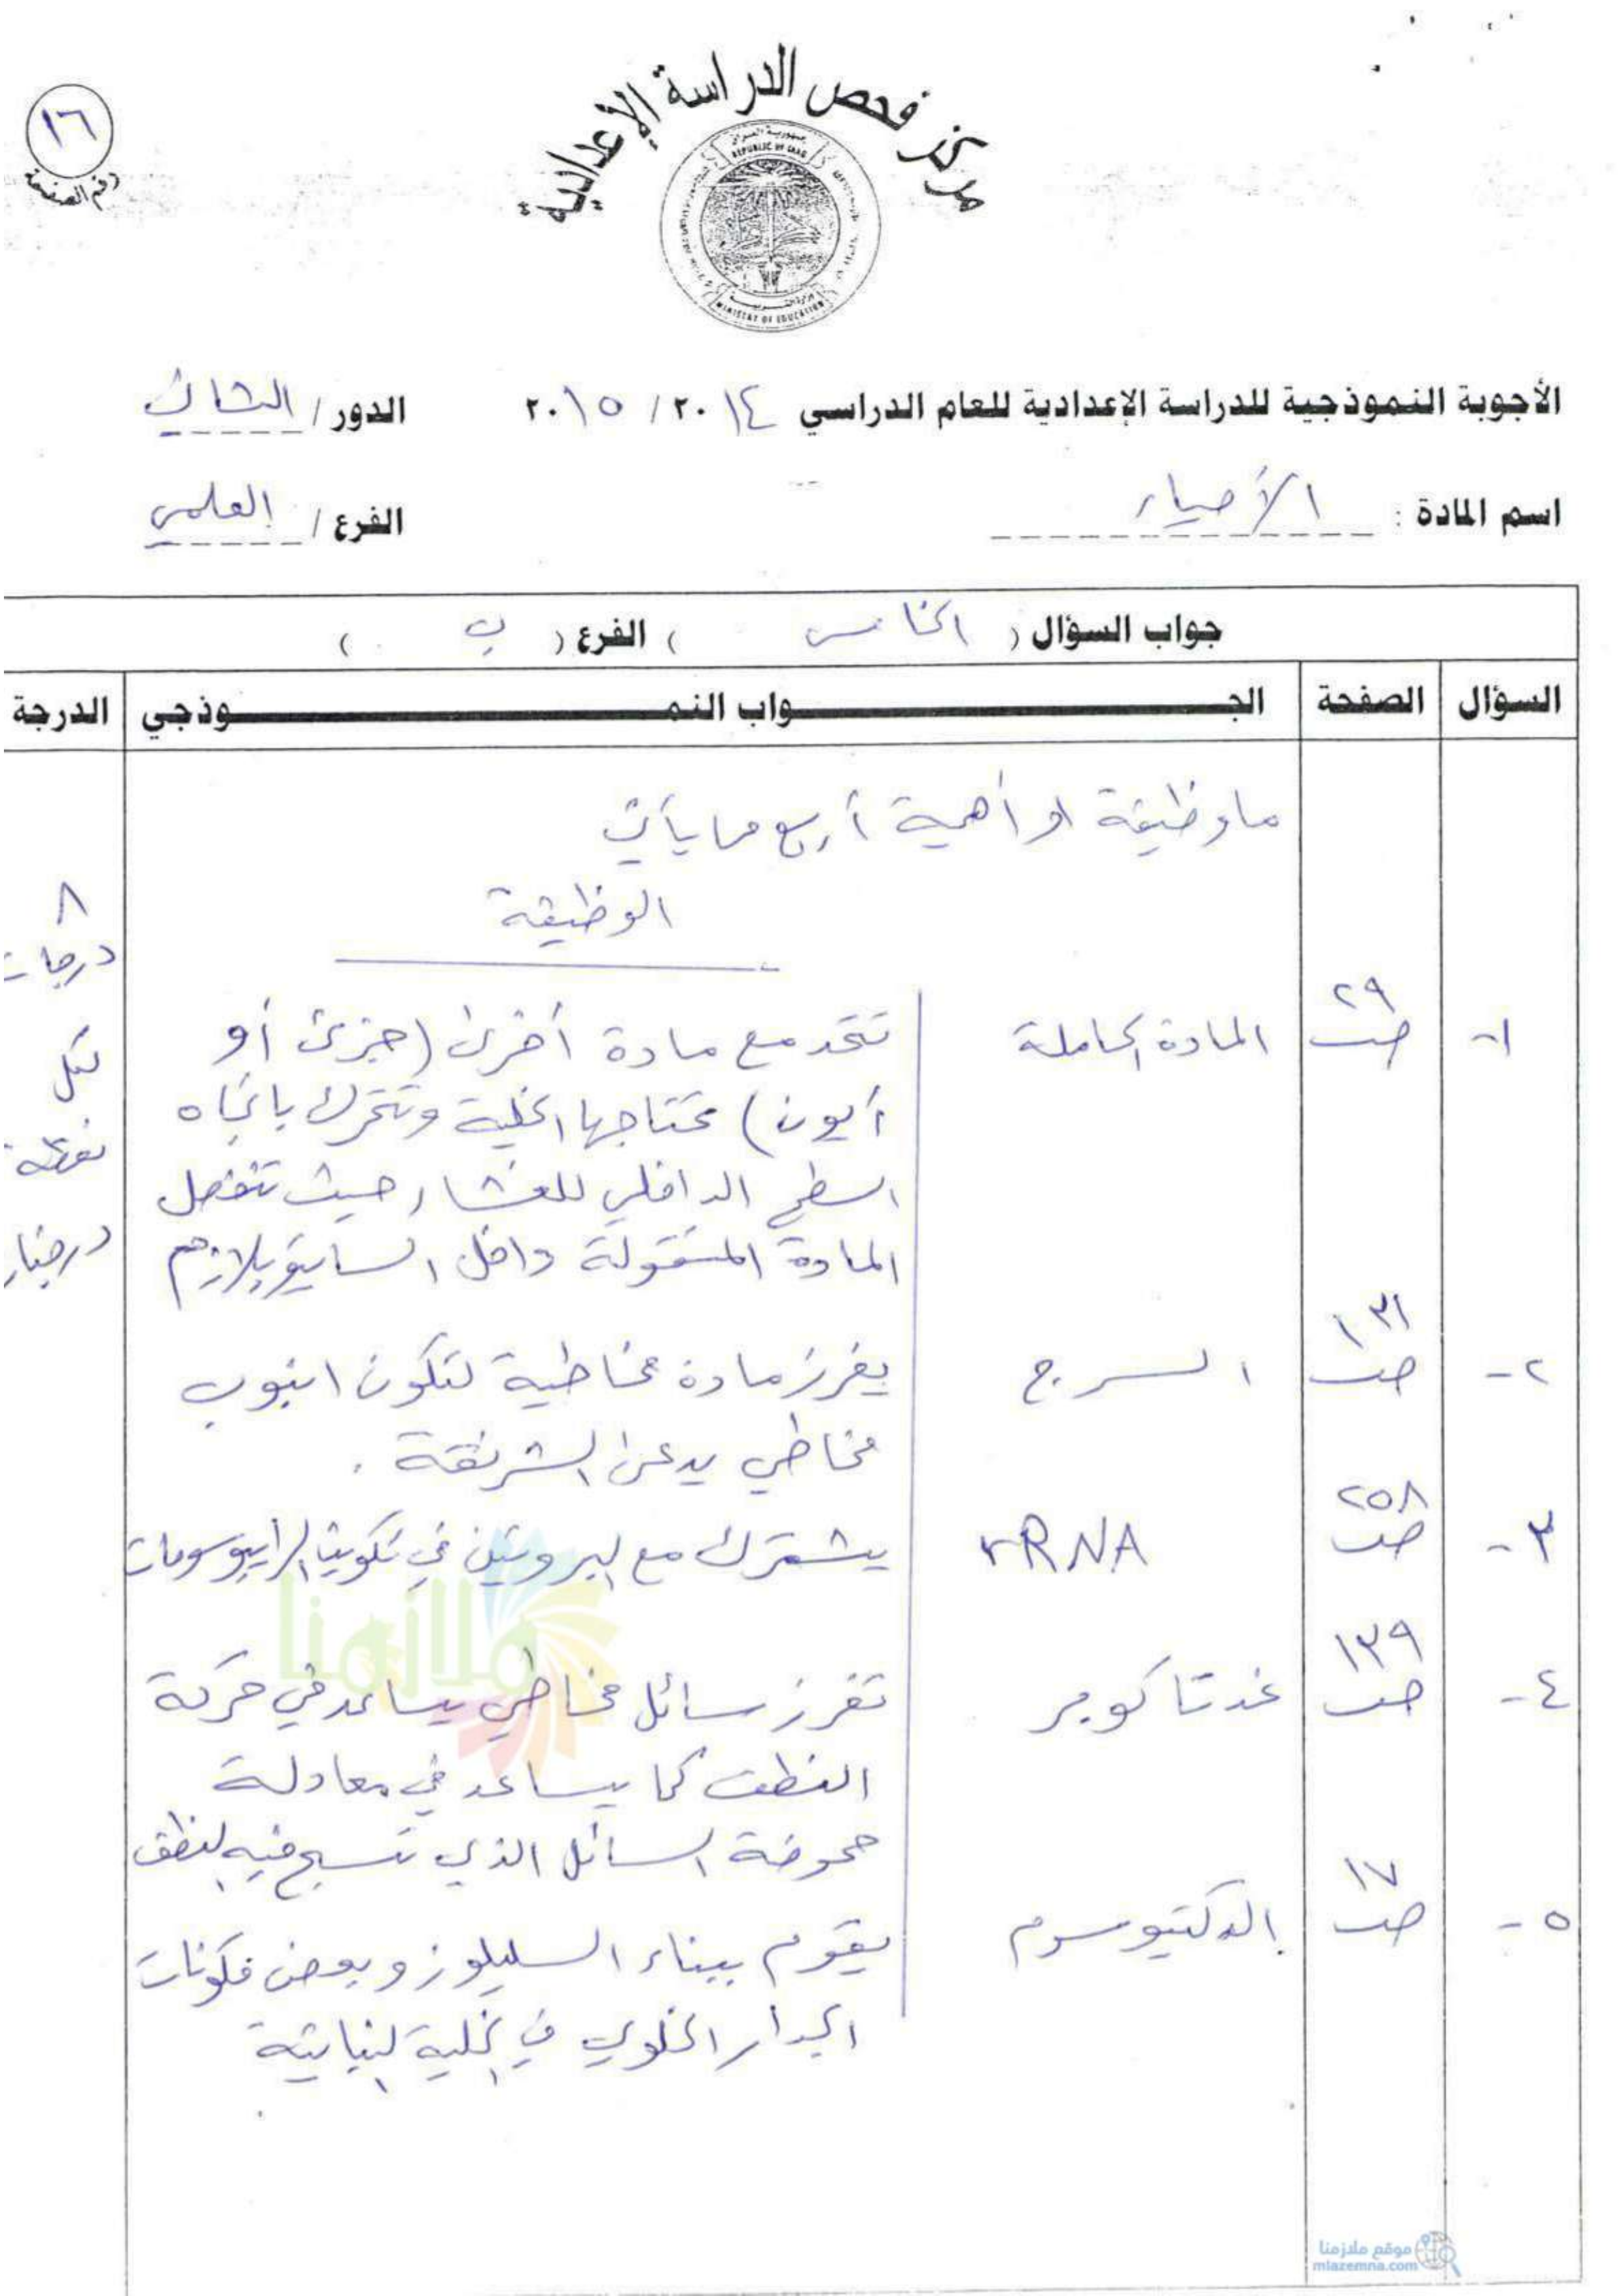 مركز فحص الدراسة الإعدادية
جمهورية العراق
REPUBLIC OF IRAQ
وزارة التربية
MINISTRY OF EDUCATION
١٦
رقم الصفحة
الأجوبة النموذجية للدراسة الإعدادية للعام الدراسي ٢٠١٤ / ٢٠١٥ الدور / الثاني
اسم المادة : الأحياء الفرع / العلمي
جواب السؤال ( الخامس ) الفرع ( ب )
السؤال الصفحة الجـواب النمـوذجي الدرجة
ما وظيفة او أهمية أربع مما يأتي
الوظيفة
٨
درجات
لكل
نقطة
درجتان
١- ص٢٩ المادة الحاملة تتحد مع مادة أخرى (جزئ أو
أيون) تحتاجها الخلية وتتحرك باتجاه
السطح الداخلي للغشاء حيث تنفصل
المادة المنقولة داخل السايتوبلازم
٢- ص١٣١ السرج يفرز مادة مخاطية لتكون انبوب
مخاطي يدعى الشرنقة .
٣- ص٢٥٨ rRNA يشترك مع البروتين في تكوين الرايبوسومات
٤- ص١٣٩ غدتا كوبر تفرز سائل مخاطي يساعد في حركة
النطف كما يساعد في معادلة
حموضة السائل الذي تسبح فيه النطف
٥- ص١٧ الدكتيوسوم يقوم ببناء السليلوز وبعض مكونات
الجدار الخلوي في الخلية النباتية
ملازمنا
موقع ملازمنا
mlazemna.com